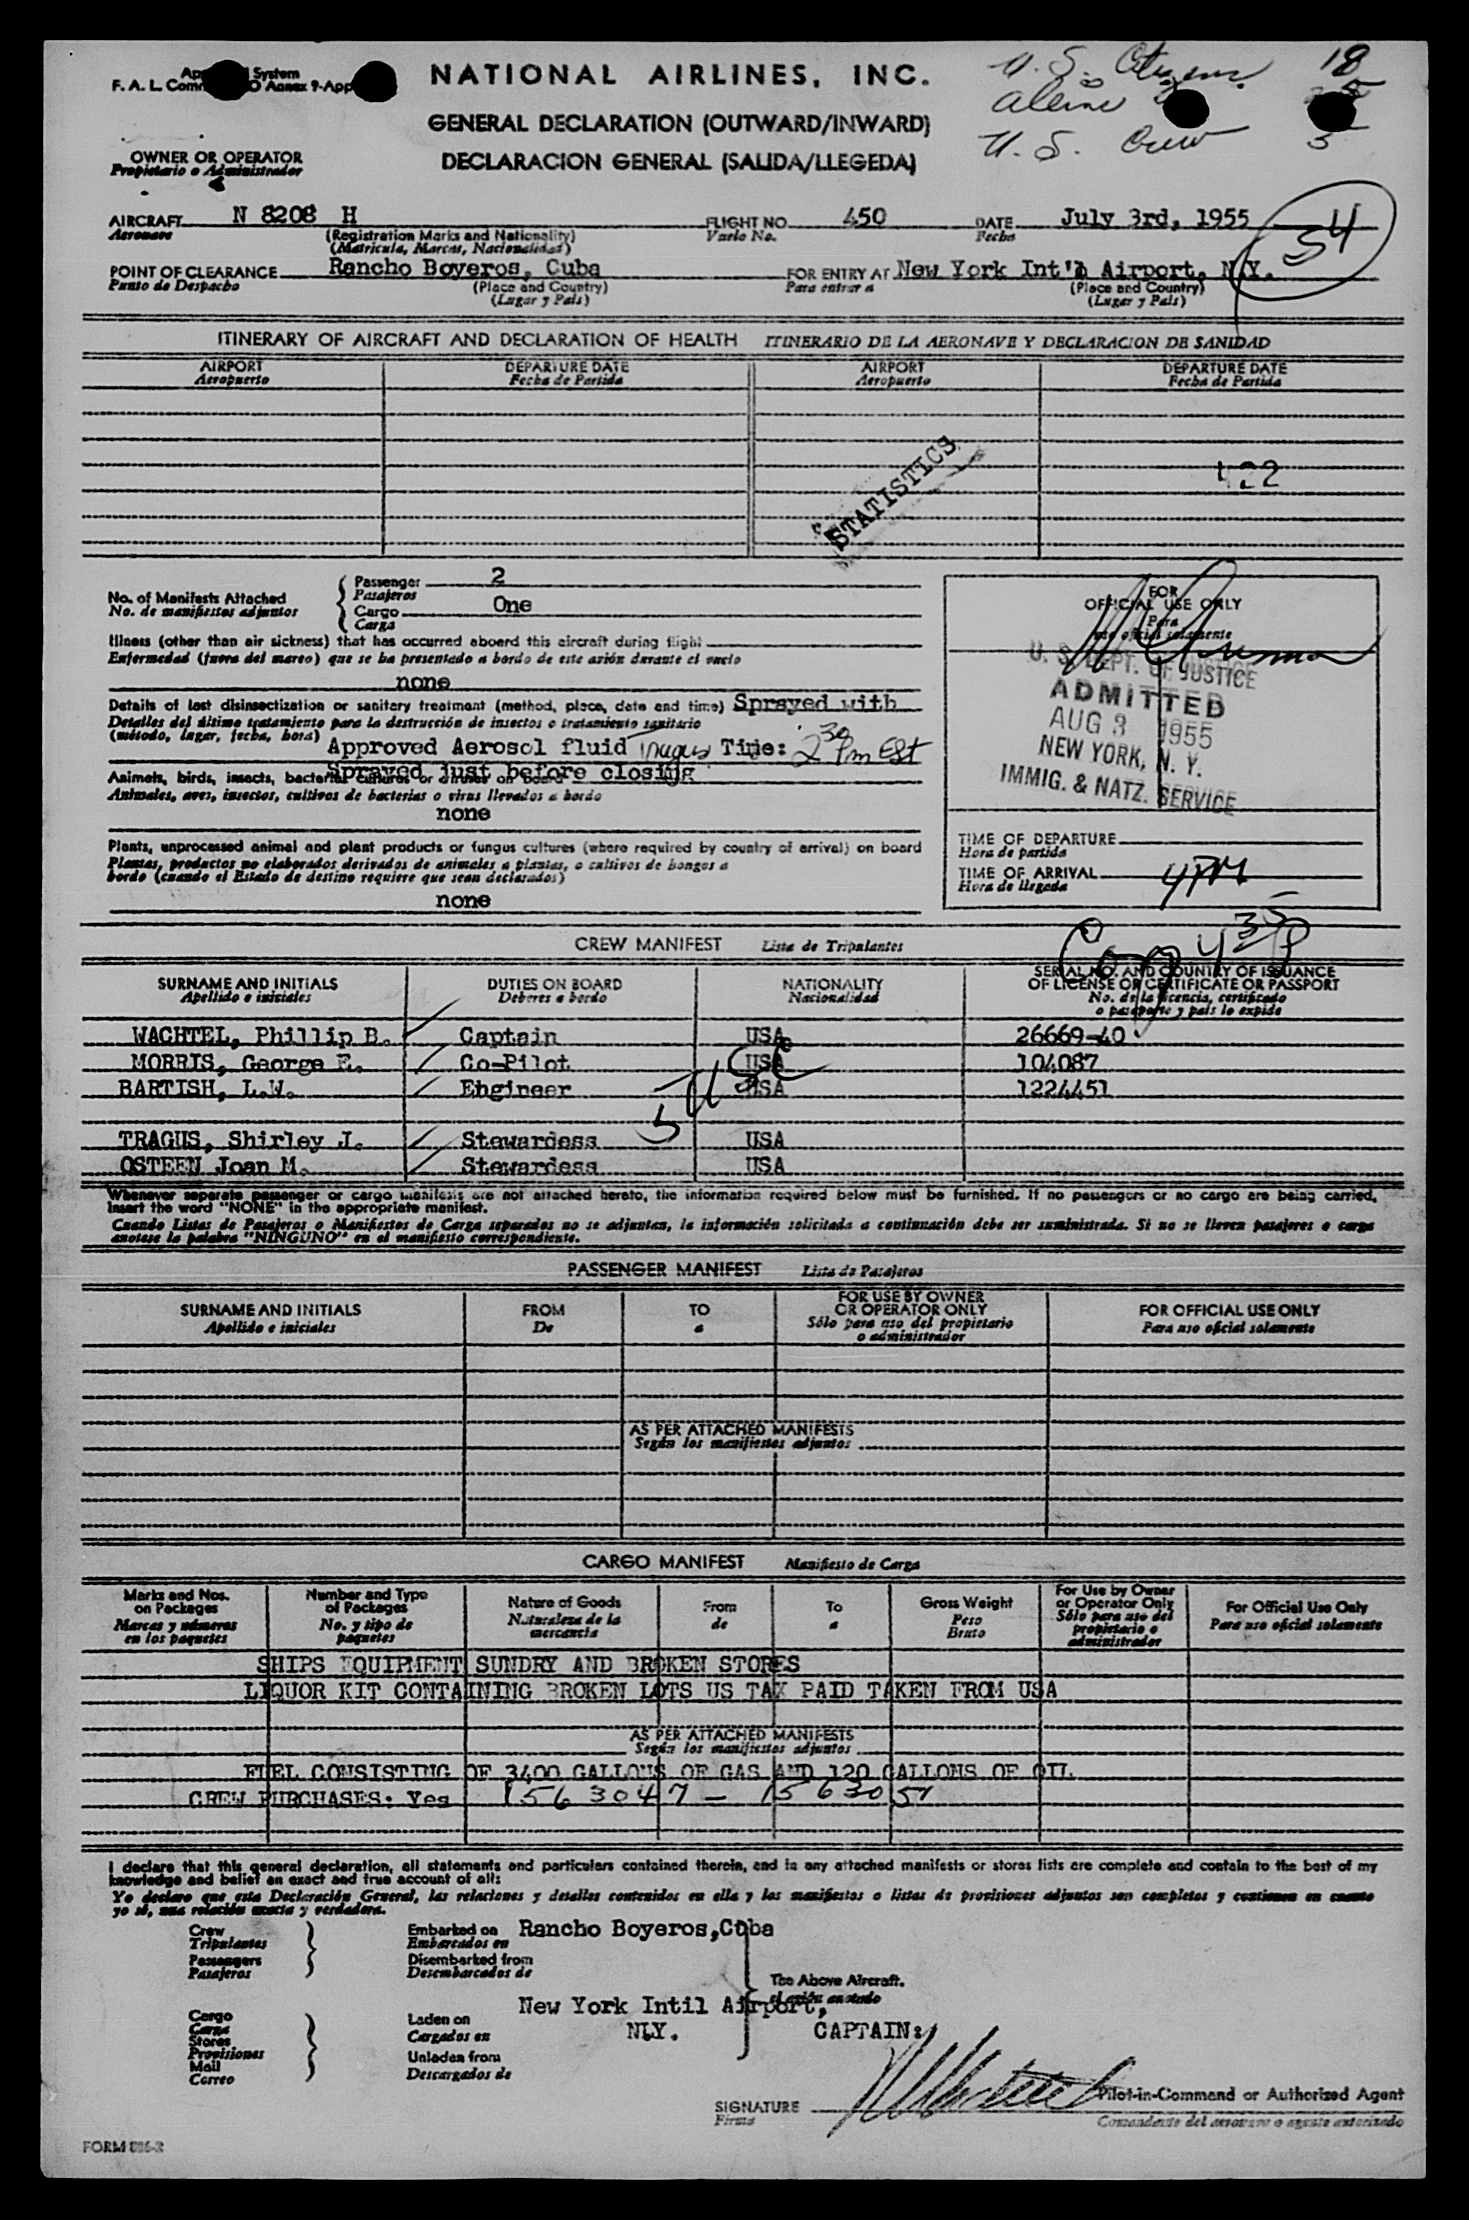 NATIONAL AIRLINES, INC.
U. S. Citizens 18
System
F. A. L. Annex 9-App
Aliens
GENERAL DECLARATION (OUTWARD/INWARD)
U. S. Crew 5
DECLARACION GENERAL (SALIDA/LLEGEDA)
OWNER OR OPERATOR
Propietario o Administrador
AIRCRAFT N 8208 H FLIGHT NO. 450 DATE July 3rd, 1955 54
Aeronave (Registration Marks and Nationality) Vuelo No. Fecha
(Matricula, Marcas, Nacionalidad)
POINT OF CLEARANCE Rancho Boyeros, Cuba FOR ENTRY AT New York Int'l Airport, N.Y.
Punto de Despacho (Place and Country) Para entrar a (Place and Country)
(Lugar y Pais) (Lugar y Pais)
ITINERARY OF AIRCRAFT AND DECLARATION OF HEALTH ITINERARIO DE LA AERONAVE Y DECLARACION DE SANIDAD
AIRPORT DEPARTURE DATE AIRPORT DEPARTURE DATE
Aeropuerto Fecha de Partida Aeropuerto Fecha de Partida
STATISTICS
422
No. of Manifests Attached Passenger 2
No. de manifiestos adjuntos Pasajeros
Cargo One
Carga
Illness (other than air sickness) that has occurred aboard this aircraft during flight
Enfermedad (fuera del mareo) que se ha presentado a bordo de este avión durante el vuelo
none
Details of last disinsectization or sanitary treatment (method, place, date and time) Sprayed with
Detalles del último tratamiento para la destrucción de insectos o tratamiento sanitario
(método, lugar, fecha, hora) Approved Aerosol fluid Time: 2 30 Pm EST
Sprayed just before closing
Animals, birds, insects, bacterial cultures or viruses on board
Animales, aves, insectos, cultivos de bacterias o virus llevados a bordo
none
Plants, unprocessed animal and plant products or fungus cultures (where required by country of arrival) on board
Plantas, productos no elaborados derivados de animales a plantas, o cultivos de hongos a
bordo (cuando el Estado de destino requiere que sean declarados)
none
FOR
OFFICIAL USE ONLY
Para
uso oficial solamente
U. S. DEPT. OF JUSTICE
ADMITTED
AUG 3 1955
NEW YORK, N. Y.
IMMIG. & NATZ. SERVICE
TIME OF DEPARTURE
Hora de partida
TIME OF ARRIVAL 4PM
Hora de llegada
4 35 P
CREW MANIFEST Lista de Tripulantes
SURNAME AND INITIALS DUTIES ON BOARD NATIONALITY SERIAL NO. AND COUNTRY OF ISSUANCE
OF LICENSE OR CERTIFICATE OR PASSPORT
Apellido e iniciales Deberes a bordo Nacionalidad No. de la licencia, certificado
o pasaporte y pais lo expide
WACHTEL, Phillip B. Captain USA 26669-40
MORRIS, George E. Co-Pilot USA 104087
BARTISH, L.W. Ehgineer USA 1224451
5 USC
TRAGUS, Shirley J. Stewardess USA
OSTEEN Joan M. Stewardess USA
Whenever separate passenger or cargo manifests are not attached hereto, the information required below must be furnished. If no passengers or no cargo are being carried,
insert the word "NONE" in the appropriate manifest.
Cuando Listas de Pasajeros o Manifiestos de Carga separados no se adjuntan, la información solicitada a continuación debe ser suministrada. Si no se llevan pasajeros o carga
anotese la palabra "NINGUNO" en el manifiesto correspondiente.
PASSENGER MANIFEST Lista de Pasajeros
SURNAME AND INITIALS FROM TO FOR USE BY OWNER
OR OPERATOR ONLY FOR OFFICIAL USE ONLY
Apellido e iniciales De a Sólo para uso del propietario
o administrador Para uso oficial solamente
AS PER ATTACHED MANIFESTS
Según los manifiestos adjuntos
CARGO MANIFEST Manifiesto de Carga
Marks and Nos.
on Packages
Marcas y números
en los paquetes
Number and Type
of Packages
No. y tipo de
paquetes
Nature of Goods
Naturaleza de la
mercancia
From
de
To
a
Gross Weight
Peso
Bruto
For Use by Owner
or Operator Only
Sólo para uso del
propietario o
administrador
For Official Use Only
Para uso oficial solamente
SHIPS EQUIPMENT SUNDRY AND BROKEN STORES
LIQUOR KIT CONTAINING BROKEN LOTS US TAX PAID TAKEN FROM USA
AS PER ATTACHED MANIFESTS
Según los manifiestos adjuntos
FUEL CONSISTING OF 3400 GALLONS OF GAS AND 120 GALLONS OF OIL
CREW PURCHASES: Yes 1563047 - 1563057
I declare that this general declaration, all statements and particulars contained therein, and in any attached manifests or stores lists are complete and contain to the best of my
knowledge and belief an exact and true account of all:
Yo declaro que esta Declaración General, las relaciones y detalles contenidos en ella y los manifiestos o listas de provisiones adjuntos son completos y contienen en cuanto
yo sé, una relación exacta y verdadera.
Crew Embarked on Rancho Boyeros,Cuba
Tripulantes Embarcados en
Passengers Disembarked from
Pasajeros Desembarcados de
The Above Aircraft.
el avión anotado
New York Intil Airport,
Cargo Laden on NLY. CAPTAIN:
Carga Cargados en
Stores
Provisiones Unladen from
Mail Descargados de
Correo
SIGNATURE Pilot-in-Command or Authorized Agent
Firma Comandante del aeronave o agente autorizado
FORM